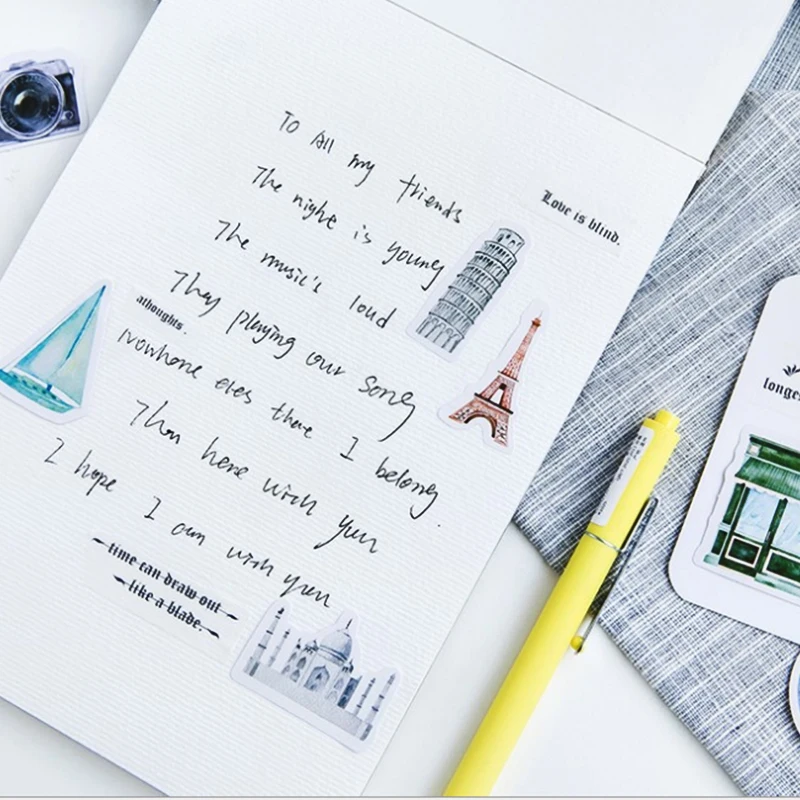 To All my friends
The night is young
Love is blind.
The music's loud
They playing our song
athoughts.
Nowhere eles there I belong.
Than here with you
I hope I am with you
time can draw out
like a blade.